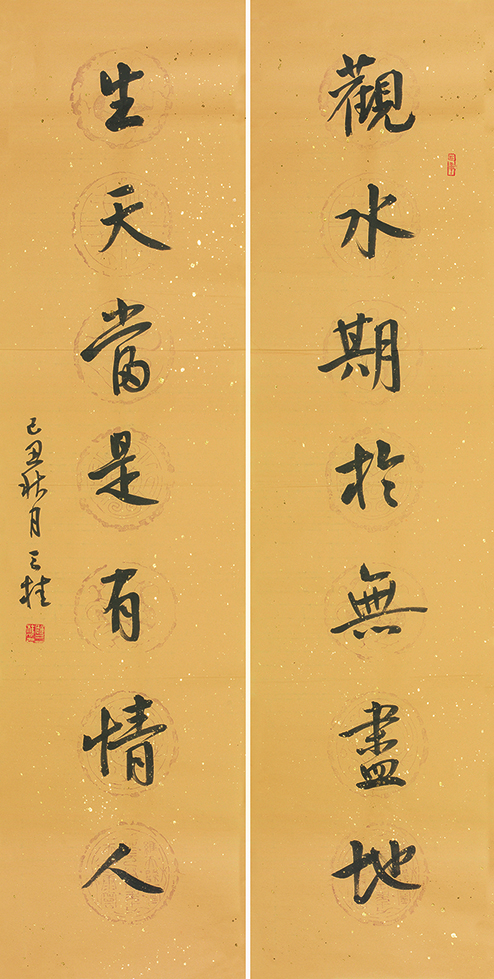 觀水期於無盡地
生天當是有情人
己丑秋月三桂